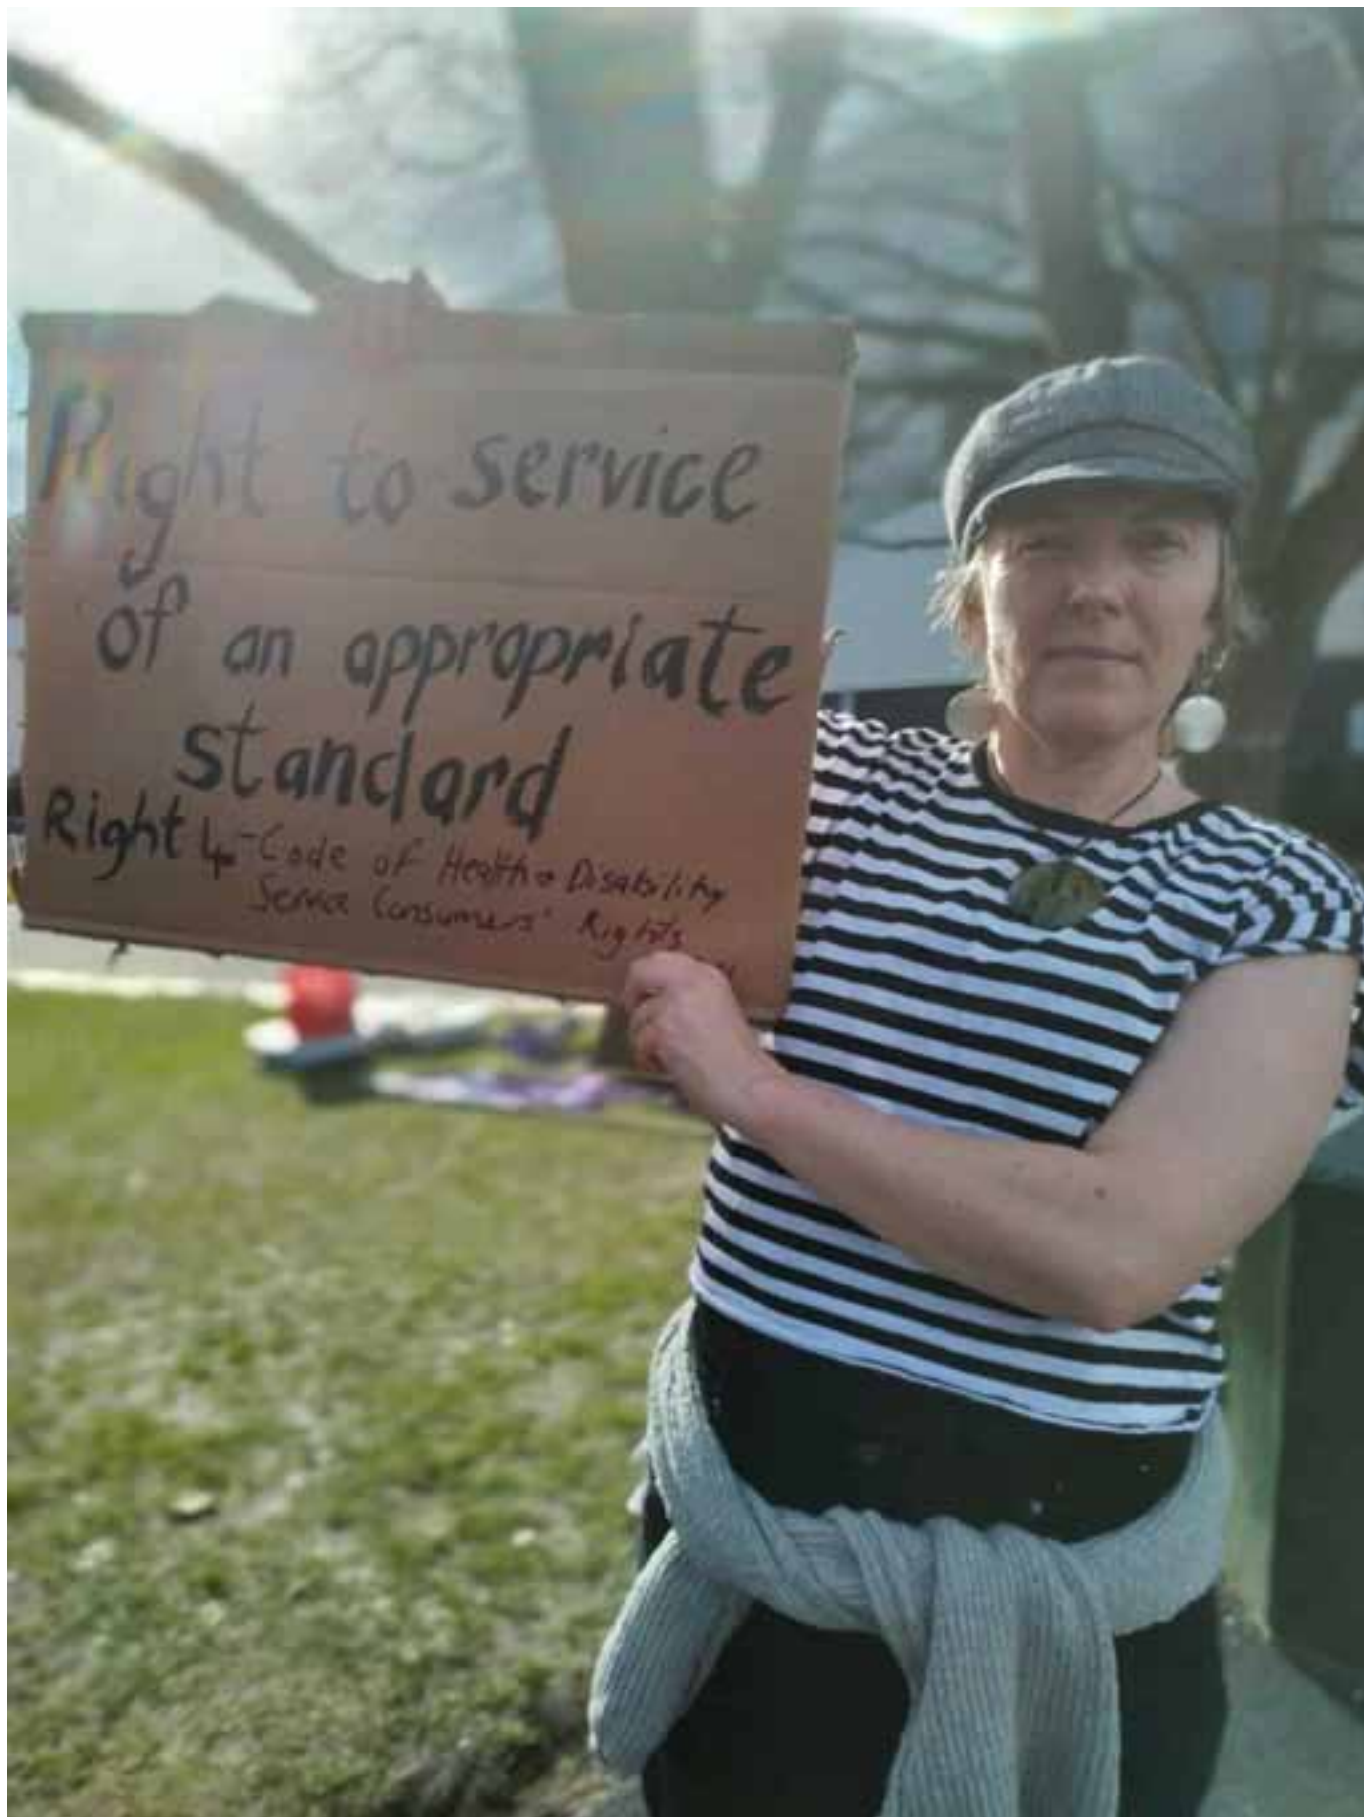 Right to service
of an appropriate
standard
Right 4 - Code of Health & Disability
Service Consumers' Rights